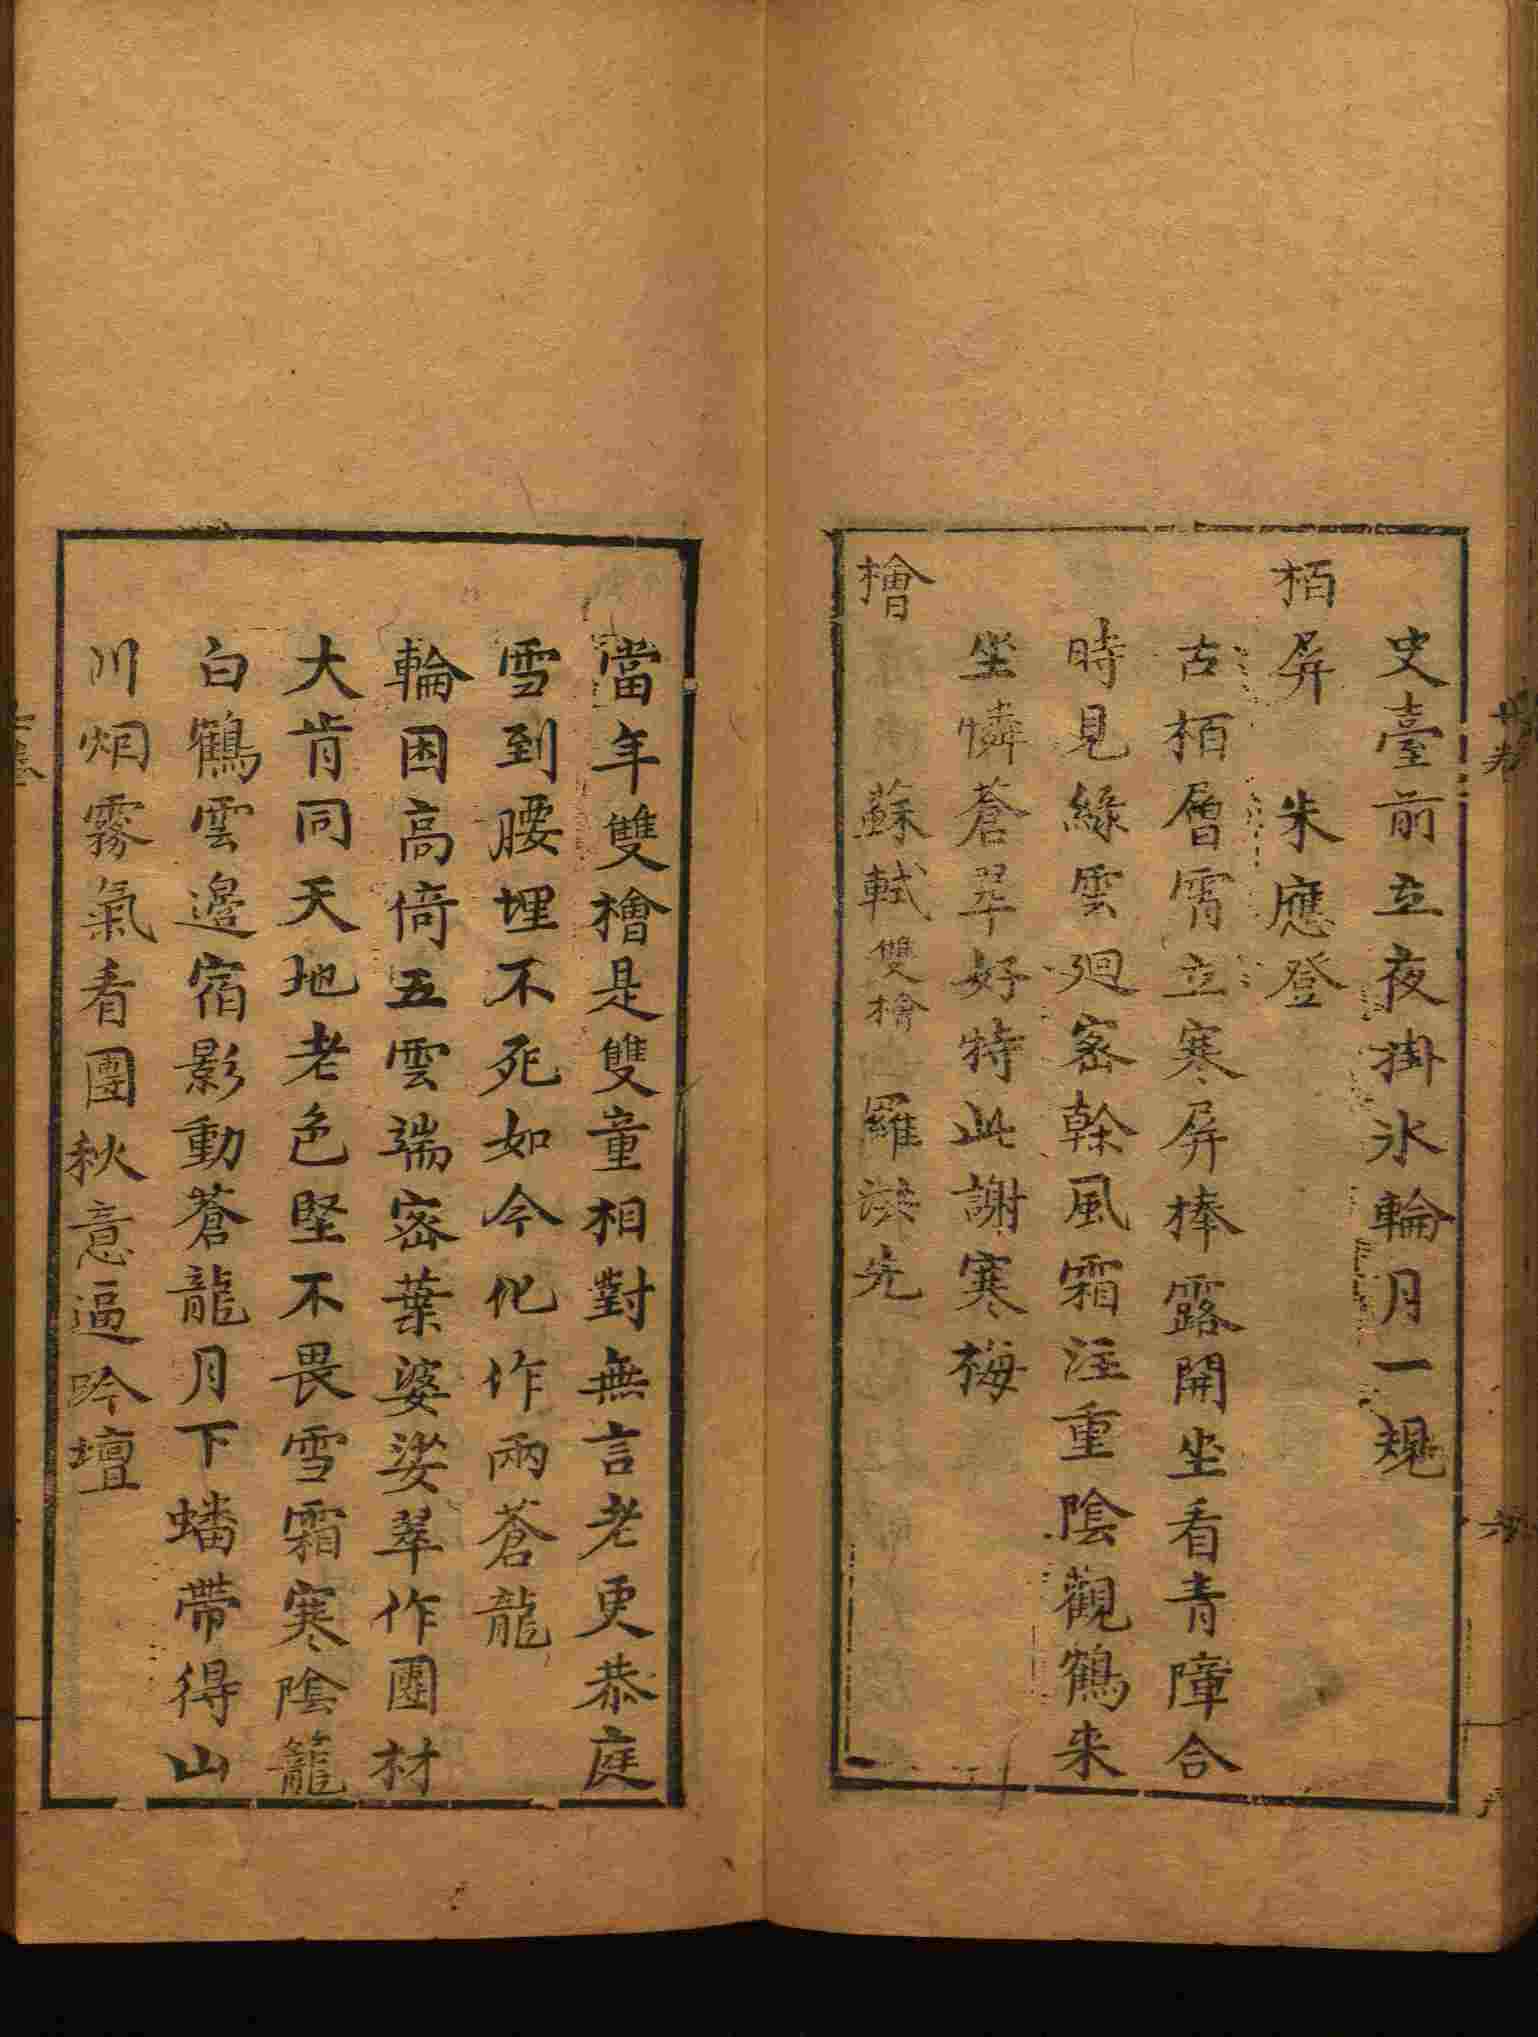 史臺前立夜掛氷輪月一規
栢屏　朱應登
古栢層霄立寒屏捧露開坐看青障合
時見緑雲廻密幹風霜注重陰觀鶴来
坐憐蒼翠好特此謝寒梅
檜　蘇軾雙檜　羅洪先
當年雙檜是雙童相對無言老更恭庭
雪到腰埋不死如今化作兩蒼龍
輪囷高倚五雲端密葉婆娑翠作團材
大肯同天地老色堅不畏雪霜寒陰籠
白鶴雲邊宿影動蒼龍月下蟠帶得山
川烟霧氣看團秋意逼吟壇